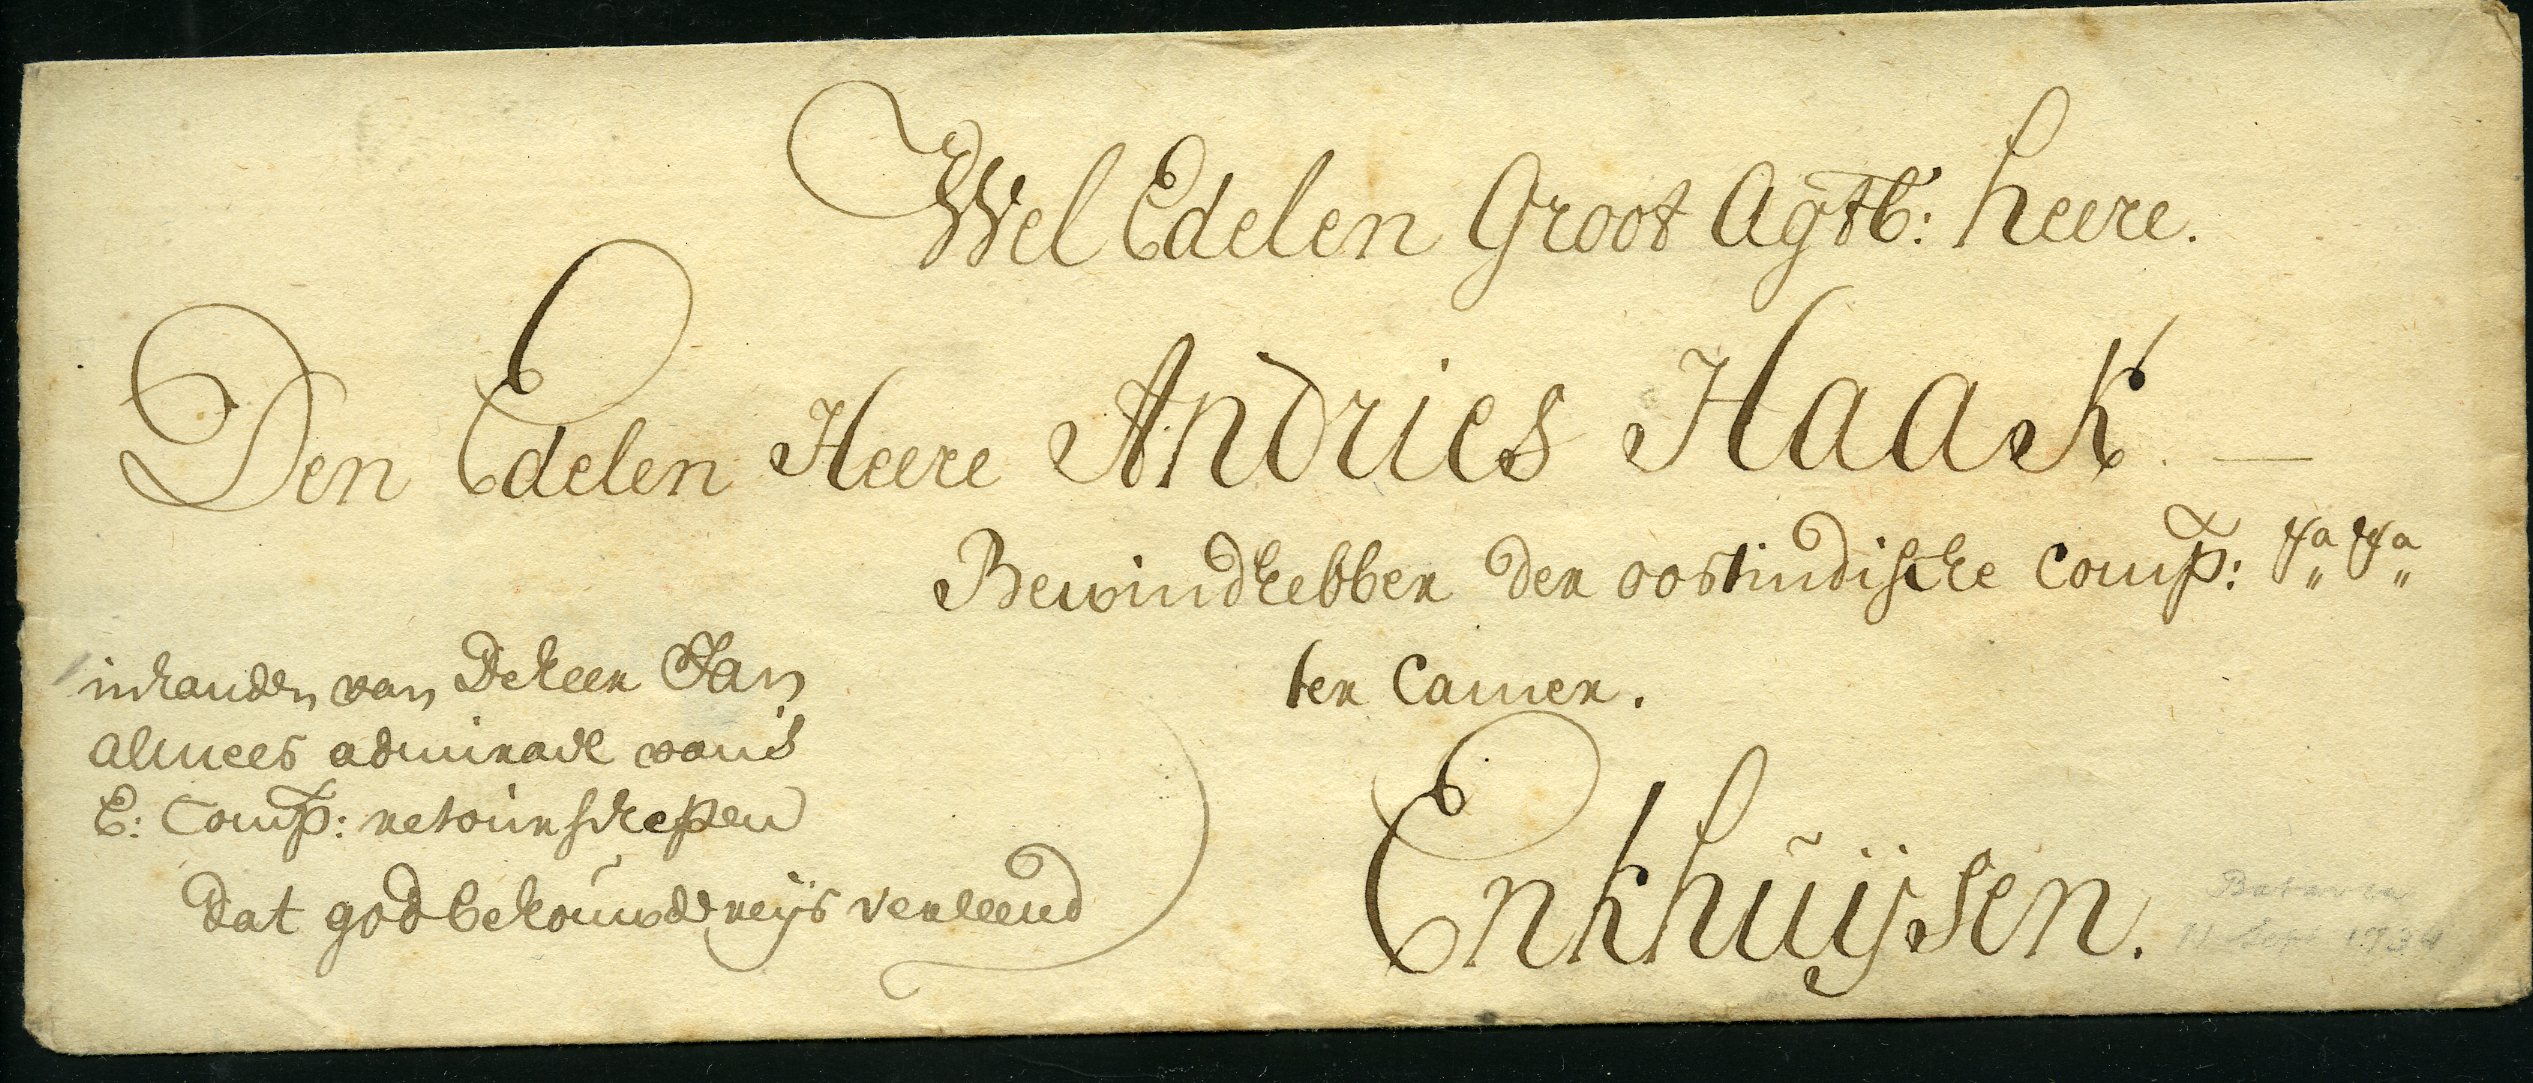 Wel Edelen Groot Agtb: heere.
Den Edelen Heere Andries Haak. —
Bewindhebber der oostindische Comp: &a &a
ter Camer.
Enkhuijsen.
inhanden van De heer Jan
almees admirael van's
E: Comp: retourschepen
dat god behoude reijs verleend
Batavia
11 Sept 1734